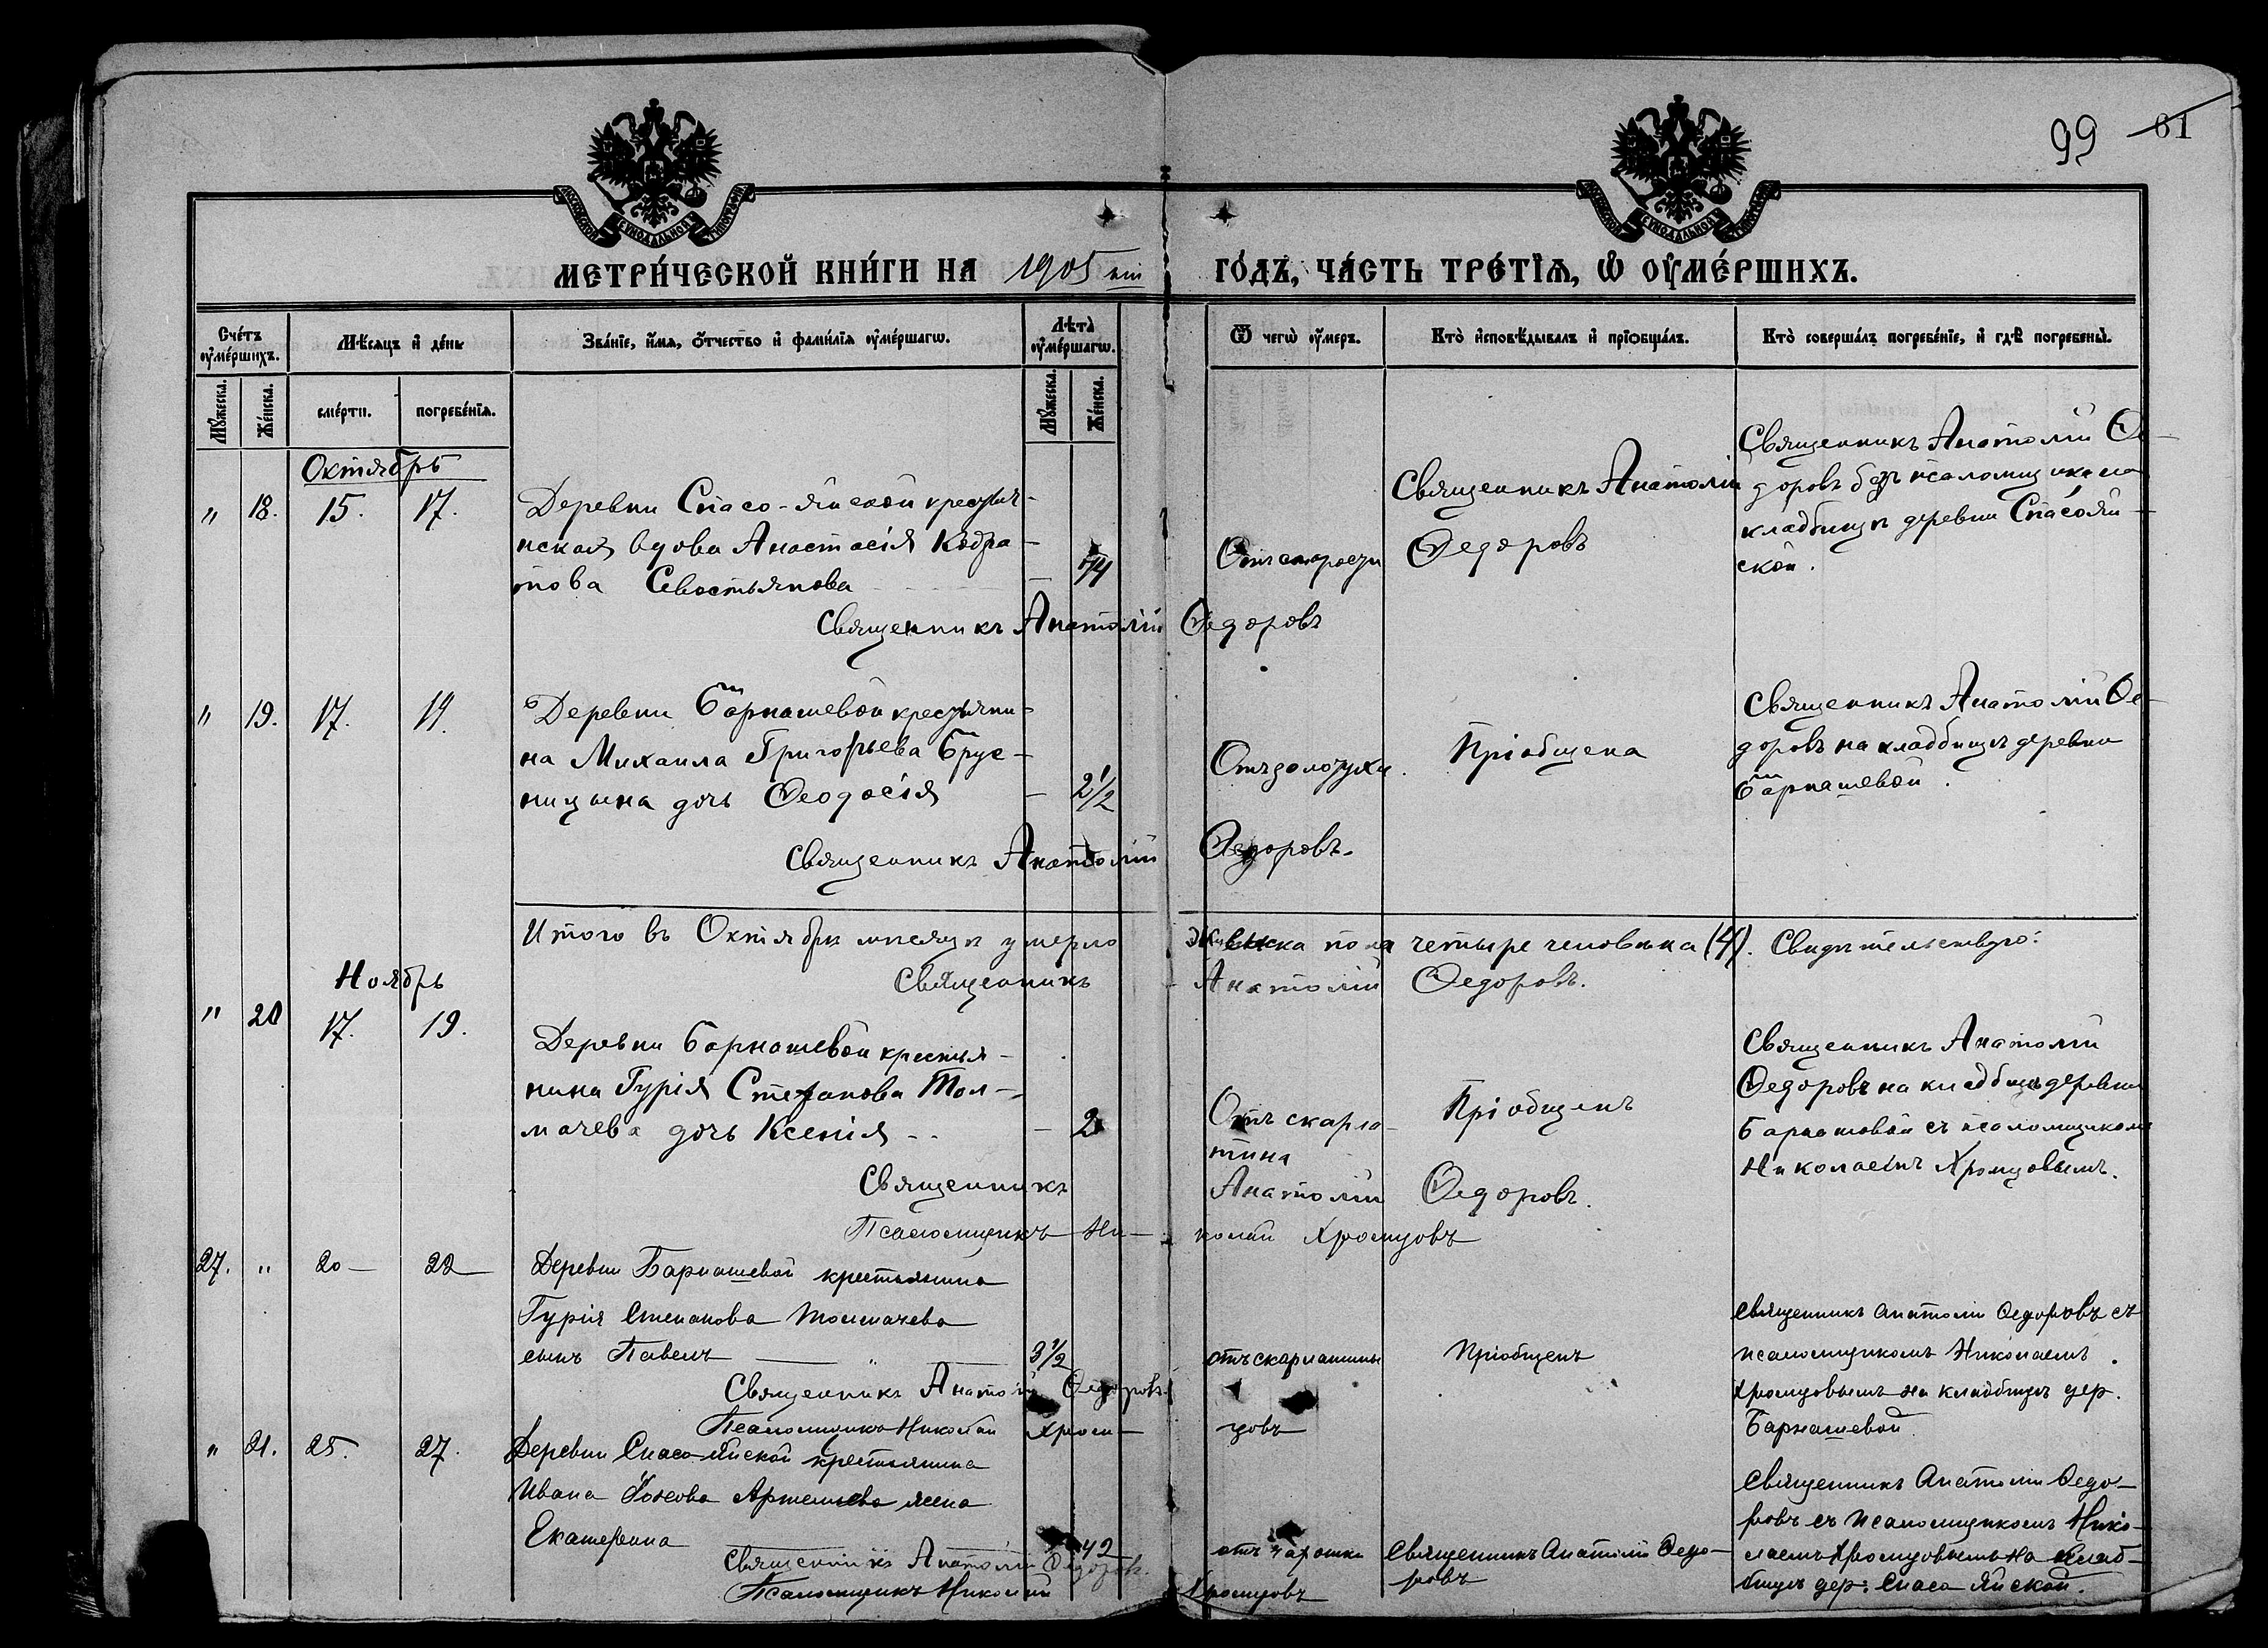 99 61
МОСКОВСКОЙ СѴНОДАЛЬНОЙ ТИПОГРАФІИ
МЕТРИ́ЧЕСКОЙ КНИ́ГИ НА 1905 ГО́ДЪ, ЧА́СТЬ ТРЕ́ТІѦ, Ѡ ОУМЕ́РШИХЪ.
Сче́тъ оуме́ршихъ.
Мѣ́сяцъ и де́нь
Зва́ніе, и́мя, о́тчество и фами́лія оуме́ршагѡ.
Лѣта̀ оуме́ршагѡ.
Ѿ чегѡ̀ оу́меръ.
Кто̀ исповѣ́дывалъ и пріобща́лъ.
Кто̀ соверша́лъ погребе́ніе, и гдѣ̀ погребены̀.
Му́жеска. Же́нска. сме́рти. погребе́нія. Му́жеска. Же́нска.
Октябрь
" 18. 15. 17.
Деревни Спасо-Яйской крестья-
нская вдова Анастасія Кодра-
това Севостьянова — 74
Отъ старости
Священникъ Анатолій
Ѳедоровъ
Священникъ Анатолій Ѳе-
доровъ безъ псаломщика на
кладбищѣ деревни Спасояй-
ской.
Священникъ Анатолій Ѳедоровъ
" 19. 17. 19.
Деревни Барнашевой крестьяни-
на Михаила Григорьева Брус-
ницына дочь Ѳеодосія — 2 1/2
Отъ золотухи.
Пріобщена
Священникъ Анатолій Ѳе-
доровъ на кладбищѣ деревни
Барнашевой.
Священникъ Анатолій Ѳедоровъ.
Итого въ Октябрѣ мѣсяцѣ умерло пола четыре человѣка (4). Свидѣтельствую:
Священникъ Анатолій Ѳедоровъ.
Ноябрь
" 20 17. 19.
Деревни Барнашевой крестья-
нина Гурія Стефанова Тол-
мачева дочь Ксенія — 2
Отъ скарла-
тина
Пріобщенъ
Священникъ Анатолій
Ѳедоровъ на кладбищѣ деревни
Барнашевой съ псаломщикомъ
Николаемъ Хромцовымъ.
Священникъ Анатолій Ѳедоровъ.
Псаломщикъ Ни- колай Хромцовъ
27. " 20 — 22 —
Деревни Барнашевой крестьянина
Гурія Степанова Толмачева
сынъ Павелъ — " — 3 1/2
отъ скарлатины
Пріобщенъ
Священникъ Анатолій Ѳедоровъ съ
псаломщикомъ Николаемъ
Хромцовымъ на кладбищѣ дер.
Барнашевой.
Священникъ Анатолій Ѳедоровъ.
Псаломщикъ Николай Хром- цовъ
" 21. 25. 27.
Деревни Спасо-Яйской крестьянина
Ивана Артемьева жена
Екатерина 42
отъ
Священникъ Анатолій Ѳедо-
ровъ
Священникъ Анатолій Ѳедо-
ровъ съ псаломщикомъ Нико-
лаемъ Хромцовымъ на клад-
бищѣ дер. Спасо Яйской.
Священникъ Анатолій Ѳедоровъ.
Псаломщикъ Николай Хромцовъ